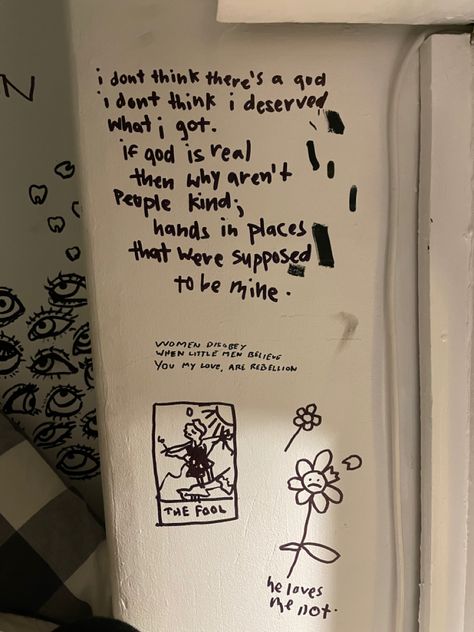 N
i dont think there's a god
i dont think i deserved
what i got.
if god is real
then why aren't
people kind;
hands in places
that were supposed
to be mine.
WOMEN DISOBEY
WHEN LITTLE MEN BELIEVE
YOU MY LOVE, ARE REBELLION
THE FOOL
he loves
me not.